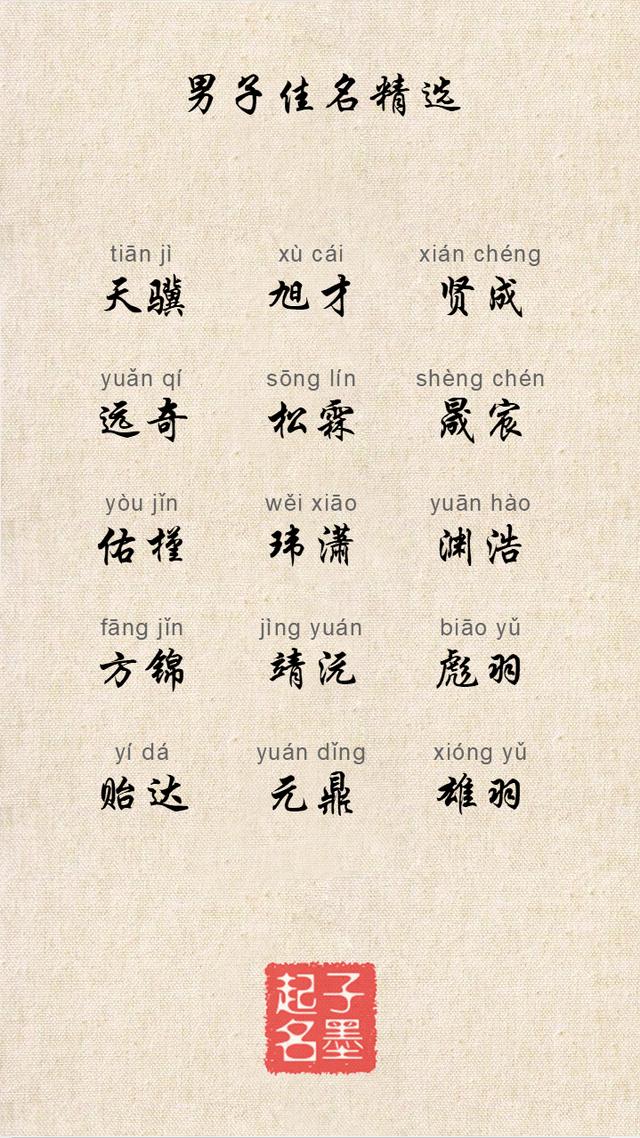 男子佳名精选
tiān jì xù cái xián chéng
天骥 旭才 贤成
yuǎn qí sōng lín shèng chén
远奇 松霖 晟宸
yòu jǐn wěi xiāo yuān hào
佑槿 玮潇 渊浩
fāng jǐn jìng yuán biāo yǔ
方锦 靖沅 彪羽
yí dá yuán dǐng xióng yǔ
贻达 元鼎 雄羽
子墨
起名